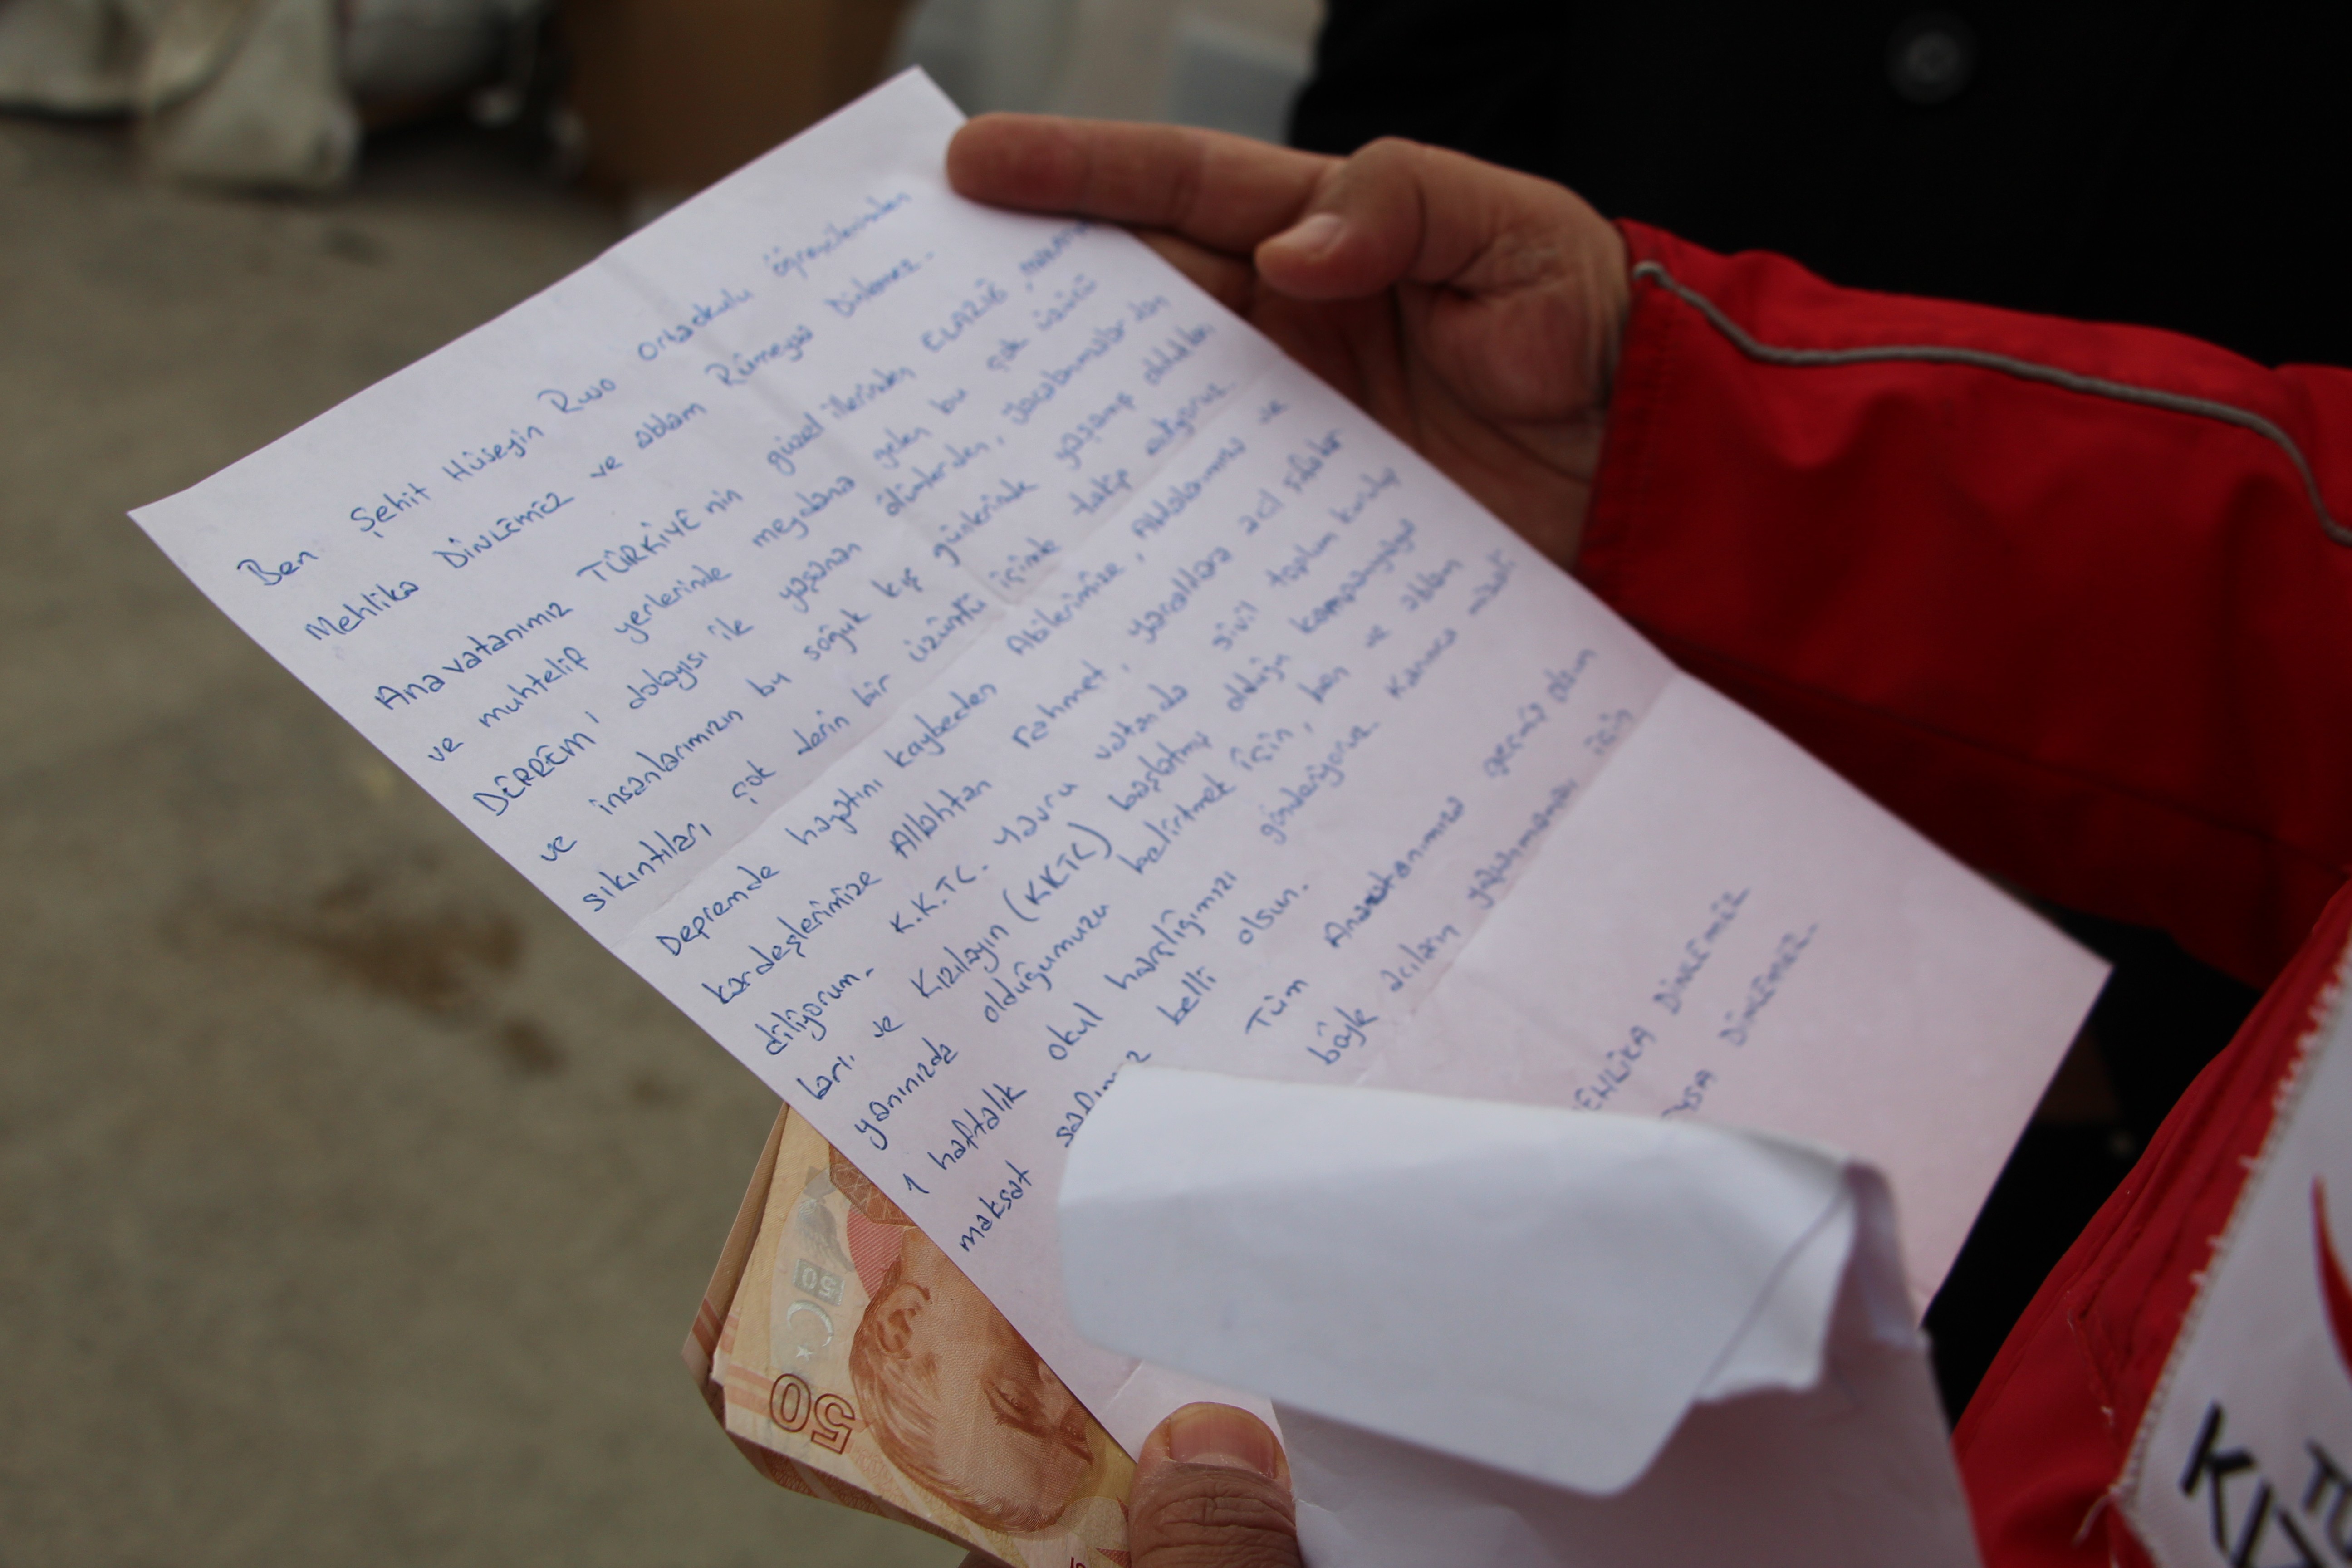 Ben Şehit Hüseyin Ruso ortaokulu öğrencilerinden
Mehlika DİNLEMEZ ve ablam Rümeysa Dinlemez.
Anavatanımız TÜRKİYE'nin güzel illerinden ELAZIĞ,
ve muhtelif yerlerinde meydana gelen bu çok üzücü
DEPREM'i dolayısı ile yaşanan ölümlerden, yaralanmalar dan
ve insanlarımızın bu soğuk kış günlerinde yaşamış oldukları
sıkıntıları çok derin bir üzüntü içinde takip ediyoruz.
Depremde hayatını kaybeden Abilerimize, Ablalarımıza ve
kardeşlerimize Allahtan rahmet, yaralılara acil şifalar
diliyorum. K.K.T.C. yavru vatanda sivil toplum kuruluş
ları ve Kızılayın (KKTC) başlatmış olduğu kampanyaya
yanınızda olduğumuzu belirtmek için, ben ve ablam
1 haftalık okul harçlığımızı gönderiyoruz. Karınca misali
maksat safımız belli olsun.
Tüm Anavatanımıza geçmiş olsun
böyle acıların yaşanmaması için
EHLİKA DİNLEMEZ
YSA DİNLEMEZ.
50
50
KIZ